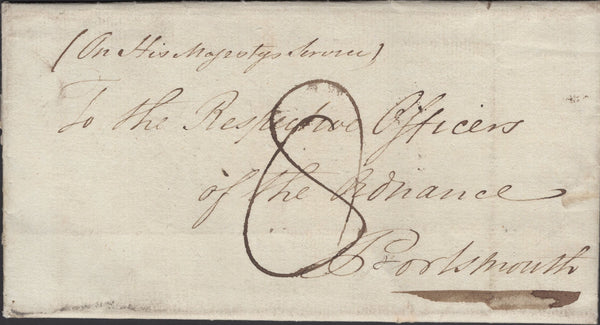 (On His Majestys Service)
To the Respective Officers
of the Ordnance
8
Portsmouth